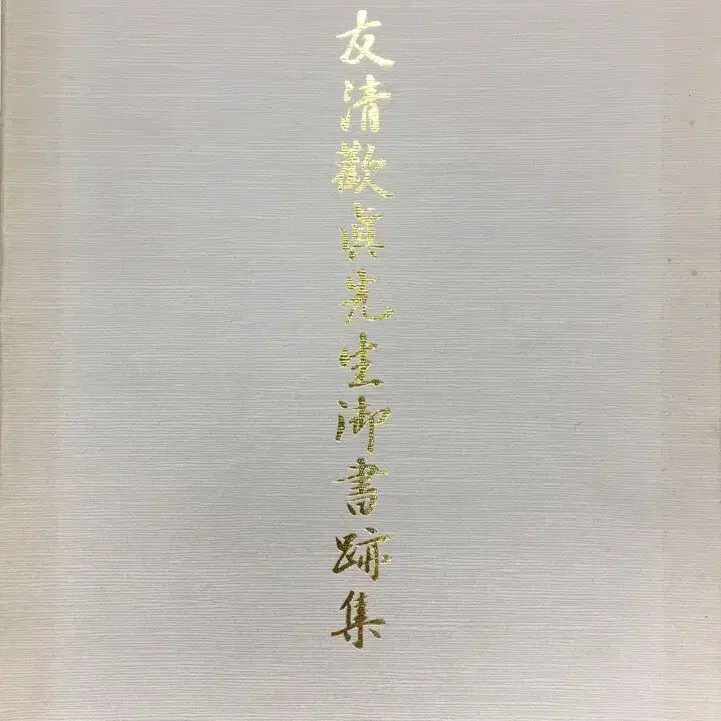 友清歓眞先生御書跡集